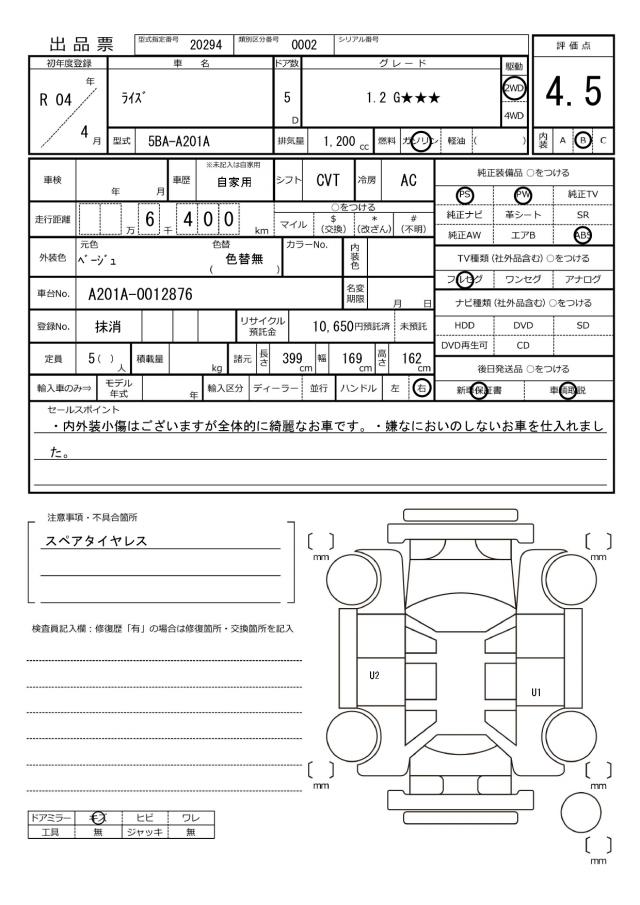 出品票 型式指定番号 20294 類別区分番号 0002 シリアル番号
評価点
4.5
内装 A B C
初年度登録 車名 ドア数 グレード 駆動
R 04 年 4 月
ﾗｲｽﾞ 5 D 1.2 G★★★ 2WD
4WD
型式 5BA-A201A 排気量 1,200 cc 燃料 ガソリン 軽油 ( )
車検 年 月 車歴 ※未記入は自家用 自家用 シフト CVT 冷房 AC
走行距離 万 6 千 4 0 0 km
○をつける
マイル $(交換) *(改ざん) #(不明)
外装色 元色 ﾍﾞｰｼﾞｭ 色替 ( 色替無 ) カラーNo. 内装色
車台No. A201A-0012876 名変期限 月 日
登録No. 抹消 リサイクル預託金 10,650円預託済 未預託
定員 5( )人 積載量 kg 諸元 長さ 399cm 幅 169cm 高さ 162cm
輸入車のみ⇒ モデル年式 年 輸入区分 ディーラー 並行 ハンドル 左 右
純正装備品 ○をつける
PS PW 純正TV
純正ナビ 革シート SR
純正AW エアB ABS
TV種類(社外品含む) ○をつける
フルセグ ワンセグ アナログ
ナビ種類(社外品含む) ○をつける
HDD DVD SD
DVD再生可 CD
後日発送品 ○をつける
新車保証書 車輌取説
セールスポイント
・内外装小傷はございますが全体的に綺麗なお車です。・嫌なにおいのしないお車を仕入れまし
た。
注意事項・不具合箇所
スペアタイヤレス
検査員記入欄：修復歴「有」の場合は修復箇所・交換箇所を記入
〔 〕mm
〔 〕mm
U2
U1
〔 〕mm
〔 〕mm
〔 〕mm
ドアミラー キズ ヒビ ワレ
工具 無 ジャッキ 無